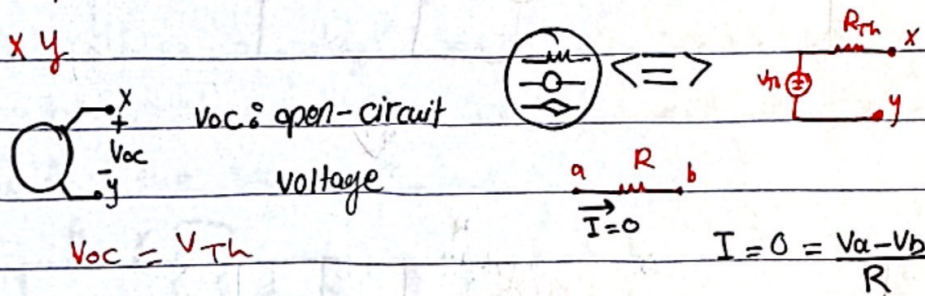 x y
RTh
x
VTh
y
x
+
Voc
-
y
Voc: open-circuit
voltage
a R b
I=0
Voc = VTh
I = 0 = Va-Vb
R